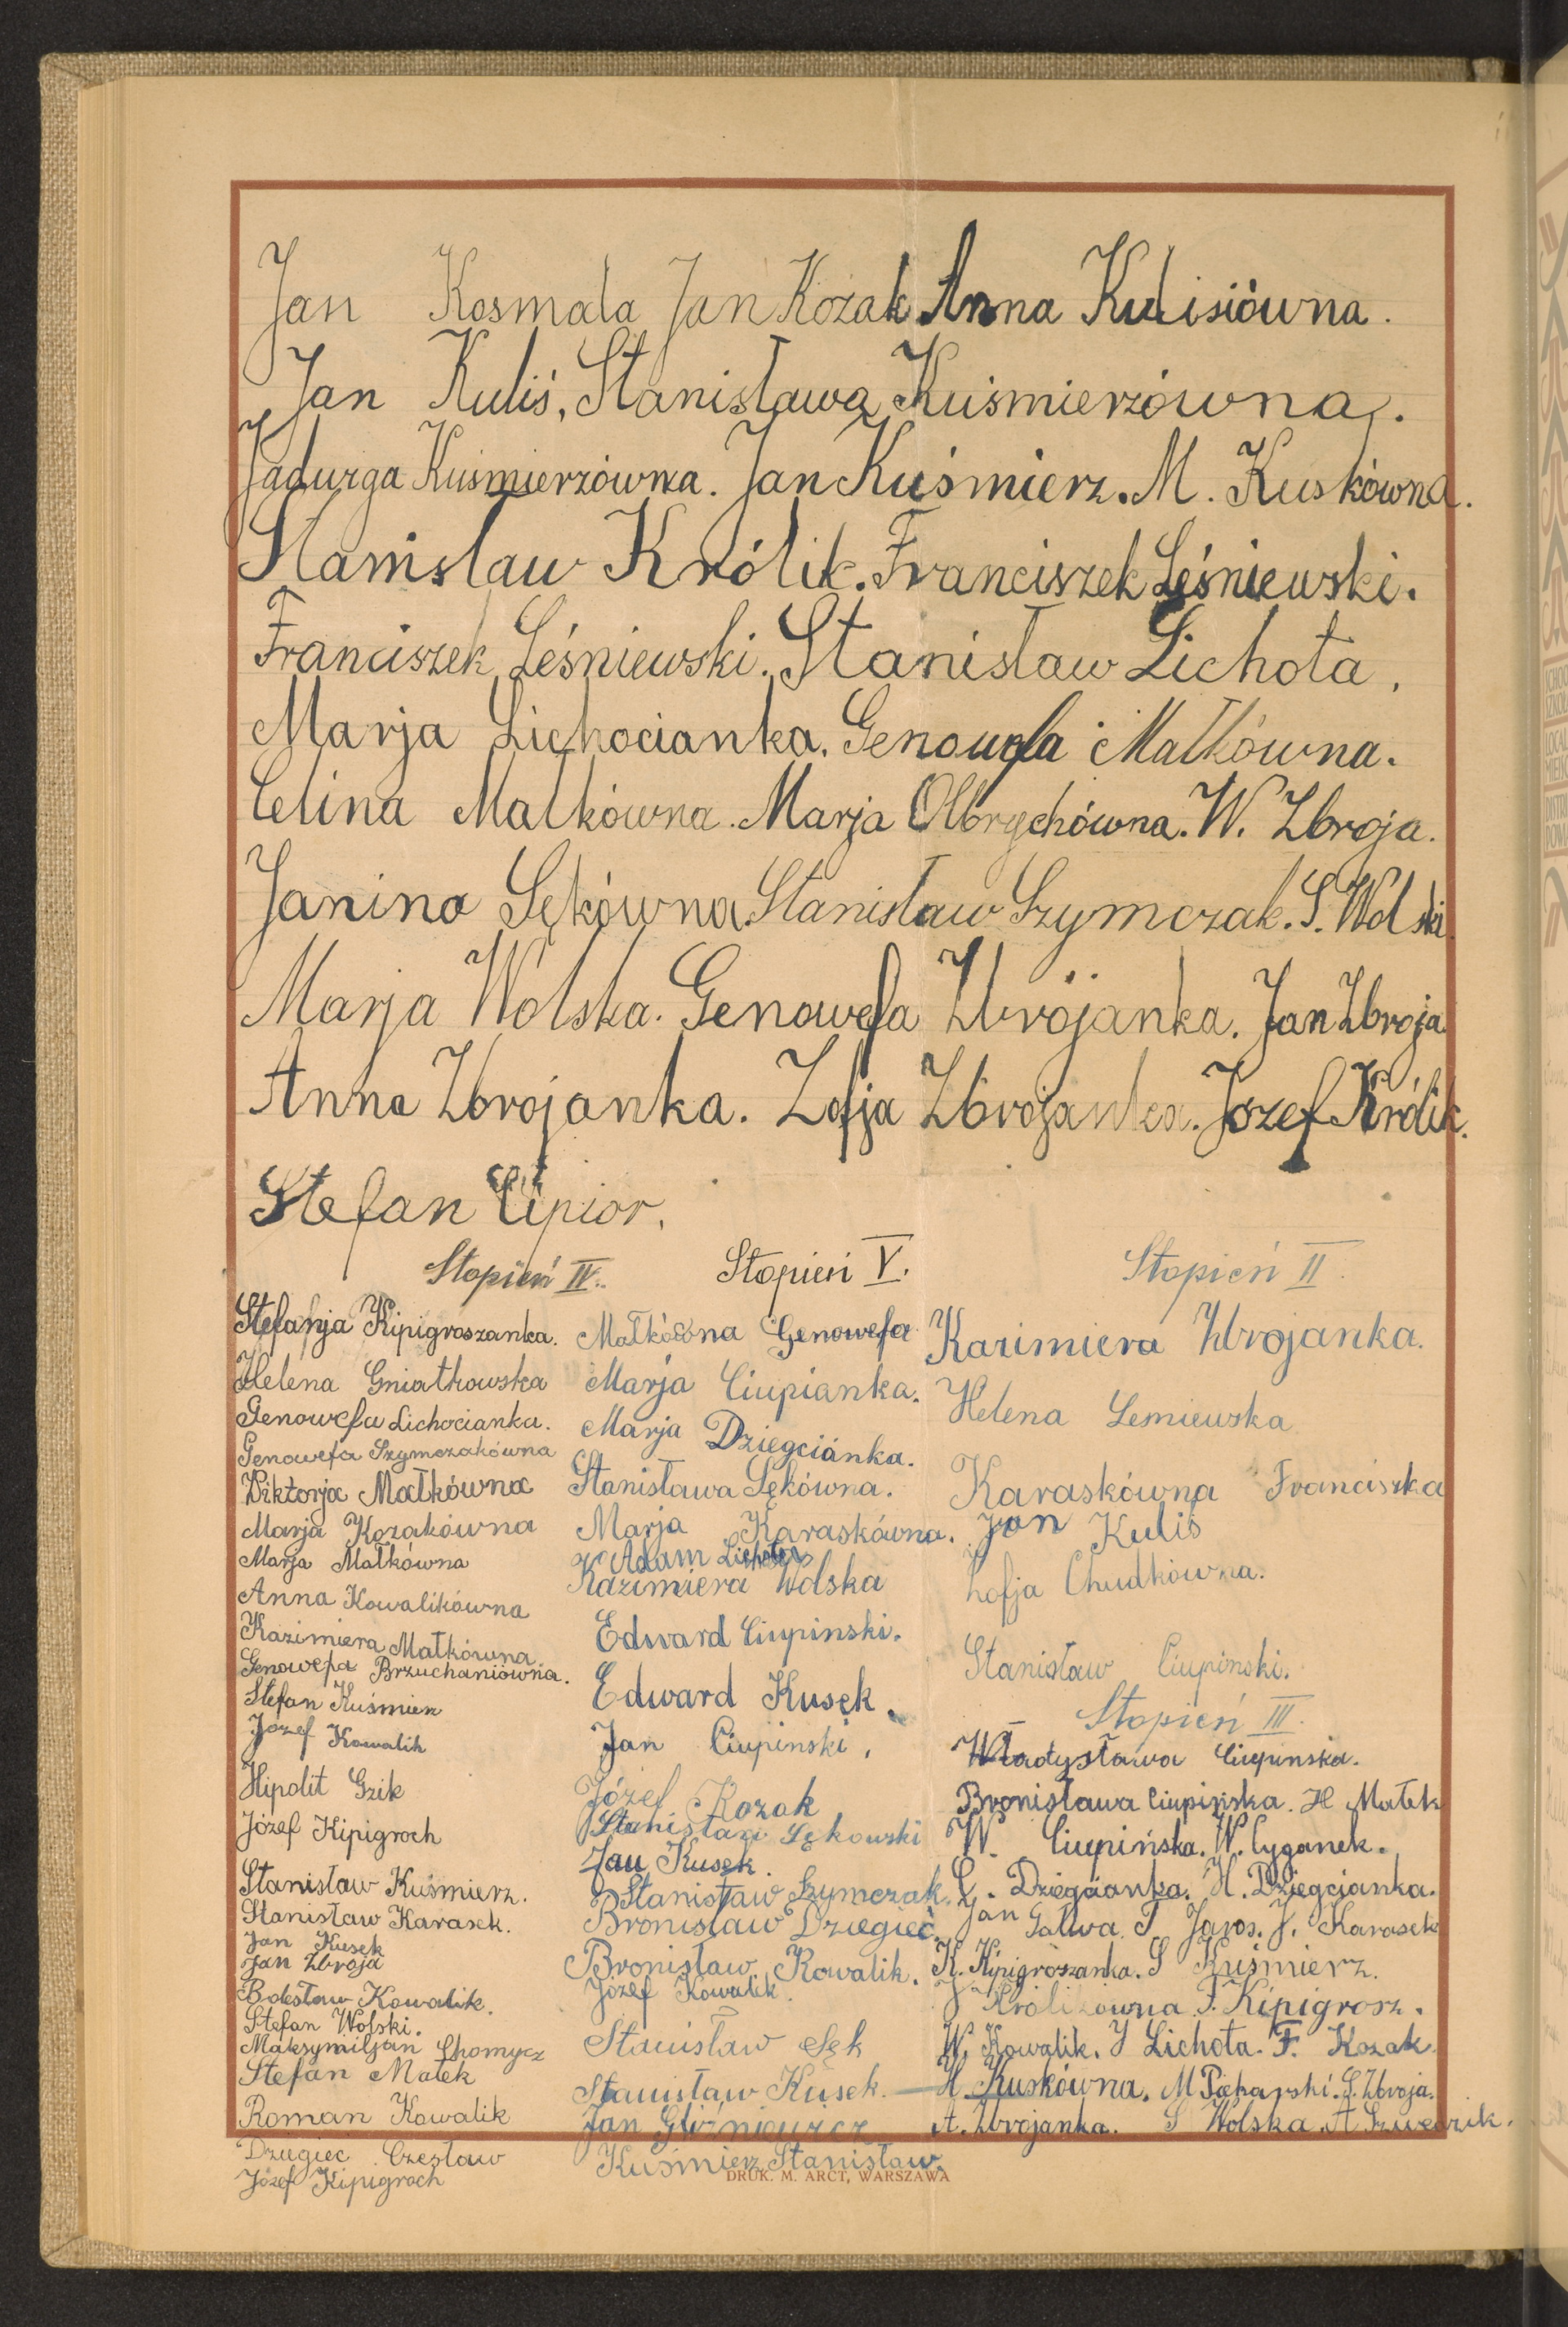 Jan Kosmala Jan Kozak Anna Kulisiówna.
Jan Kuliś, Stanisława Kuśmierzówna.
Jadwiga Kuśmierzówna. Jan Kuśmierz. M. Kuskówna.
Stanisław Królik. Franciszek Leśniewski.
Franciszek Leśniewski. Stanisław Lichota.
Marja Lichocianka. Genowefa Małkówna.
Celina Małkówna. Marja Olbrychówna. W. Zbroja.
Janina Sękówna. Stanisław Szymczak. S. Wolski
Marja Wolska. Genowefa Zbrojanka. Jan Zbroja
Anna Zbrojanka. Zofja Zbrojanka. Józef Królik.
Stefan
Stopień IV.
Stefanja Kipigroszanka.
Helena Gniatkowska
Genowefa Lichocianka.
Genowefa Szymczakówna
Wiktorja Małkówna
Marja Kozakówna
Marja Małkówna
Anna Kowalikówna
Kazimiera Małkówna
Genowefa Brzuchaniówna.
Stefan Kuśmierz
Józef Kowalik
Hipolit Gzik
Józef Kipigroch
Stanisław Kuśmierz.
Stanisław Karasek.
Jan Kusek
Jan Zbroja
Bolesław Kowalik.
Stefan Wolski.
Maksymiljan Chomycz
Stefan Małek
Roman Kowalik
Dziegieć Czesław
Józef Kipigroch
Stopień V.
Małkówna Genowefa
Marja Ciupianka.
Marja Dziegcianka.
Stanisława Sękówna.
Marja Karaskówna.
Adam Lichota
Kazimiera Wolska
Edward Ciupinski.
Edward Kusek.
Jan Ciupinski,
Józef Kozak
Stanisław Sękowski
Jan Kusek.
Stanisław Szymczak.
Bronisław Dziegieć.
Bronisław Kowalik.
Józef Kowalik.
Stanisław Sęk
Stanisław Kusek.
Jan
Kuśmierz Stanisław
Stopień II.
Kazimiera Zbrojanka.
Helena Lemiewska
Karaskówna Franciszka
Jan Kulis
Zofja Chudkówna.
Stanisław Ciupinski.
Stopień III.
Władysława Ciupinska.
Bronisława Ciupińska. H Małek
W. Ciupińska. W. Cyganek.
Dziegcianka. H. Dziegcianka.
Jan T Jaros. J. Karasek
K. Kipigroszanka. S Kuśmierz.
J Królikówna F. Kipigrosz.
W. Kowalik. J Lichota. F. Kozak.
H. Kuskówna. M Piekarski. S. Zbroja.
A. Zbrojanka. S Wolska. A
DRUK. M. ARCT, WARSZAWA